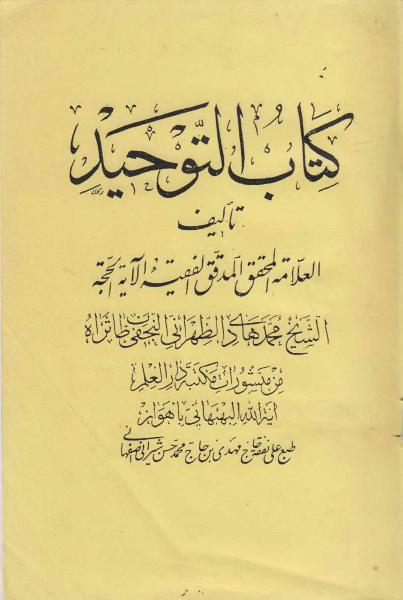 كتاب التوحيد
تأليف
العلامة المحقق المدقق الفقيه الآية الحجة
الشيخ محمد هادي الطهراني النجفي طاب ثراه
من منشورات مكتبة دار العلم
آية الله البهبهاني باهواز
طبع على نفقة حاج مهدى بن حاج محمد حسن شيرانى اصفهانى